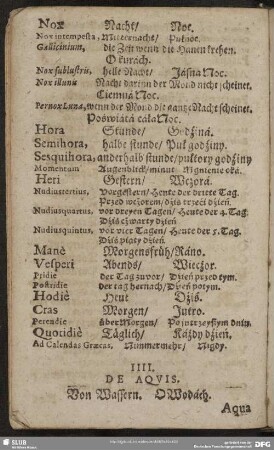 Nox Nacht/ Noc.
Nox intempesta, Mitternacht/ Pułnoc.
Gallicinium, die Zeit wenn die Hanen krehen.
O kurach.
Nox sublustris, helle Nacht/ Jásna Noc.
Nox illunis Nacht darinn der Mond nicht scheinet.
Ciemna Noc.
Pernox Luna, wenn der Mond die gantze Nacht scheinet.
Poświátá cáła Noc.
Hora Stunde/ Godźiná.
Semihora, halbe stunde/ Puł godźiny.
Sesquihora, anderhalb stunde/ pułtory godźiny
Momentum Augenblick/ minut Mgnienie oká.
Heri Gestern/ Wczorá.
Nudiustertius, Vorgestern/ Heute der dritte Tag.
Przed wczorem/ dźiś trzeći dźień.
Nudiusquartus, vor dreyen Tagen/ Heute der 4. Tag
Dźiś czwarty dźień
Nudiusquintus, vor vier Tagen/ Heute der 5. Tag.
Dźiś piąty dźień.
Manè Morgensfrüh/ Ráno.
Vesperi Abends/ Wieczor.
Pridie der Tag zuvor/ Dźień przed tym.
Postridie der tag hernach/ Dźień potym.
Hodiè Heut Dźiś.
Cras Morgen/ Jutro.
Perendie überMorgen/ Po jutrzeyszym dniu.
Quotidiè Täglich/ Káżdy dźień.
Ad Calendas Græcas, Nimmermehr/ Nigdy.
IIII.
DE AQVIS.
Von Wassern. O Wodách.
Aqua
SLUB
DFG